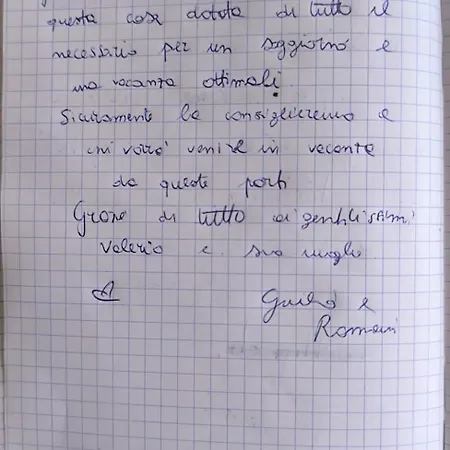 questa casa dotata di tutto il
necessario per un soggiorno e
una vacanza ottimali.
Sicuramente la consiglieremo a
chi vorrà venire in vacanza
da queste parti
Grazie di tutto ai gentilissimi
Valerio e sua moglie
e
Romani